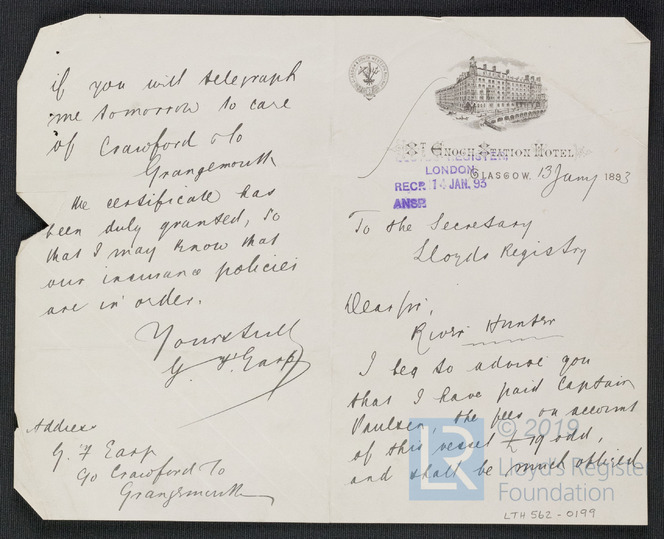 St. Enoch Station Hotel
LONDON
RECP. 14 JAN. 93
ANSD.
Glasgow, 13 Jany 1893
To the Secretary
Lloyds Registry
Dear Sir,
River Hunter
I beg to advise you
that I have paid Captain
Paulsen, the fees on account
of this vessel £79 odd,
and shall be much obliged
if you will telegraph
me tomorrow to care
of Crawford & Co
Grangemouth
the certificate has
been duly granted, so
that I may know that
our insurance policies
are in order.
Yours truly
G. F. Earp
Address
G. F Earp
c/o Crawford & Co
Grangemouth
© 2019
LR
Lloyd's Register
Foundation
LTH 562 - 0199